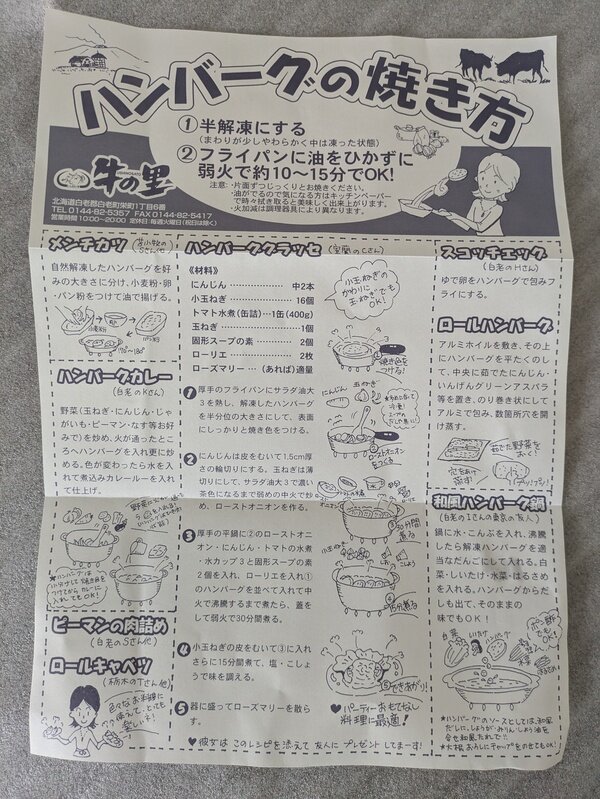 ハンバーグの焼き方
①半解凍にする
(まわりが少しやわらかく中は凍った状態)
②フライパンに油をひかずに
弱火で約10〜15分でOK!
注意・片面ずつじっくりとお焼きください。
・油がでるので気になる方はキッチンペーパー
で時々拭き取ると美味しく出来上がります。
・火加減は調理器具により異なります。
牛の里
北海道白老郡白老町栄町1丁目6番
TEL 0144-82-5357 FAX 0144-82-5417
営業時間 10:00〜20:00 定休日:毎週火曜日(祝日は除く)
メンチカツ
(苫小牧のSさん他)
自然解凍したハンバーグを好
みの大きさに分け、小麦粉・卵
・パン粉をつけて油で揚げる。
小麦粉
卵
パン粉
170°〜180°
ハンバーグカレー
(白老のKさん)
野菜(玉ねぎ・にんじん・じゃ
がいも・ピーマン・なす等お好
みで)を炒め、火が通ったとこ
ろへハンバーグを入れ更に炒
める。色が変わったら水を入れ
て煮込みカレールーを入れ
て仕上げ。
ピーマンの肉詰め
(白老のSさん他)
ロールキャベツ
(栃木のTさん他)
色々なお料理に
添えて、とても
楽しい!
ハンバーググラッセ
(室蘭のCさん)
《材料》
にんじん……………中2本
小玉ねぎ……………16個
トマト水煮(缶詰)…1缶(400g)
玉ねぎ………………1個
固形スープの素……2個
ローリエ……………2枚
ローズマリー…(あれば)適量
小玉ねぎの
かわりに
玉ねぎでも
OK!
❶厚手のフライパンにサラダ油大
3を熱し、解凍したハンバーグを
半分位の大きさにして、表面
にしっかりと焼き色をつける。
焼き色を
つける!
❷にんじんは皮をむいて1.5cm厚
さの輪切りにする。玉ねぎは薄
切りにして、サラダ油大3で濃い
茶色になるまで弱めの中火で炒
め、ローストオニオンを作る。
にんじん
玉ねぎ
ローストオニオン
をつくる
❸厚手の平鍋に②のローストオニ
オン・にんじん・トマトの水煮
・水カップ3と固形スープの素
2個を入れ、ローリエを入れ①
のハンバーグを並べて入れて中
火で沸騰するまで煮たら、蓋を
して弱火で30分間煮る。
30分間
煮る
❹小玉ねぎの皮をむいて③に入れ
さらに15分間煮て、塩・こしょ
うで味を調える。
15分煮る
❺器に盛ってローズマリーを散ら
す。
できあがり!
♥パーティーおもてなし
料理に最適!
♥彼女はこのレシピを添えて友人にプレゼントしてまーす!
スコッチエッグ
(白老のHさん)
ゆで卵をハンバーグで包みフ
ライにする。
ロールハンバーグ
アルミホイルを敷き、その上
にハンバーグを平たくのばし
て、中央に茹でたにんじん・
いんげんグリーンアスパラ
等を置き、のり巻き状にして
アルミで包み、数箇所穴を開
け蒸す。
茹でた野菜を
おく!
穴をあけて
蒸す!
和風ハンバーグ鍋
(白老のSさんの東京の友人)
鍋に水・こんぶを入れ、沸騰
したら解凍ハンバーグを適
当なだんごにして入れる。白
菜・しいたけ・水菜・はるさめ
を入れる。ハンバーグからだ
しも出て、そのままの
味でもOK!
ポン酢
でも
OK!
白菜
しいたけ
ハンバーグ
★ハンバーグのソースとしては、和風
だしに、しょうが・みりん・しょう油を
合せ和風たれで!!
★大根おろしにケチャップをのせてもOK!